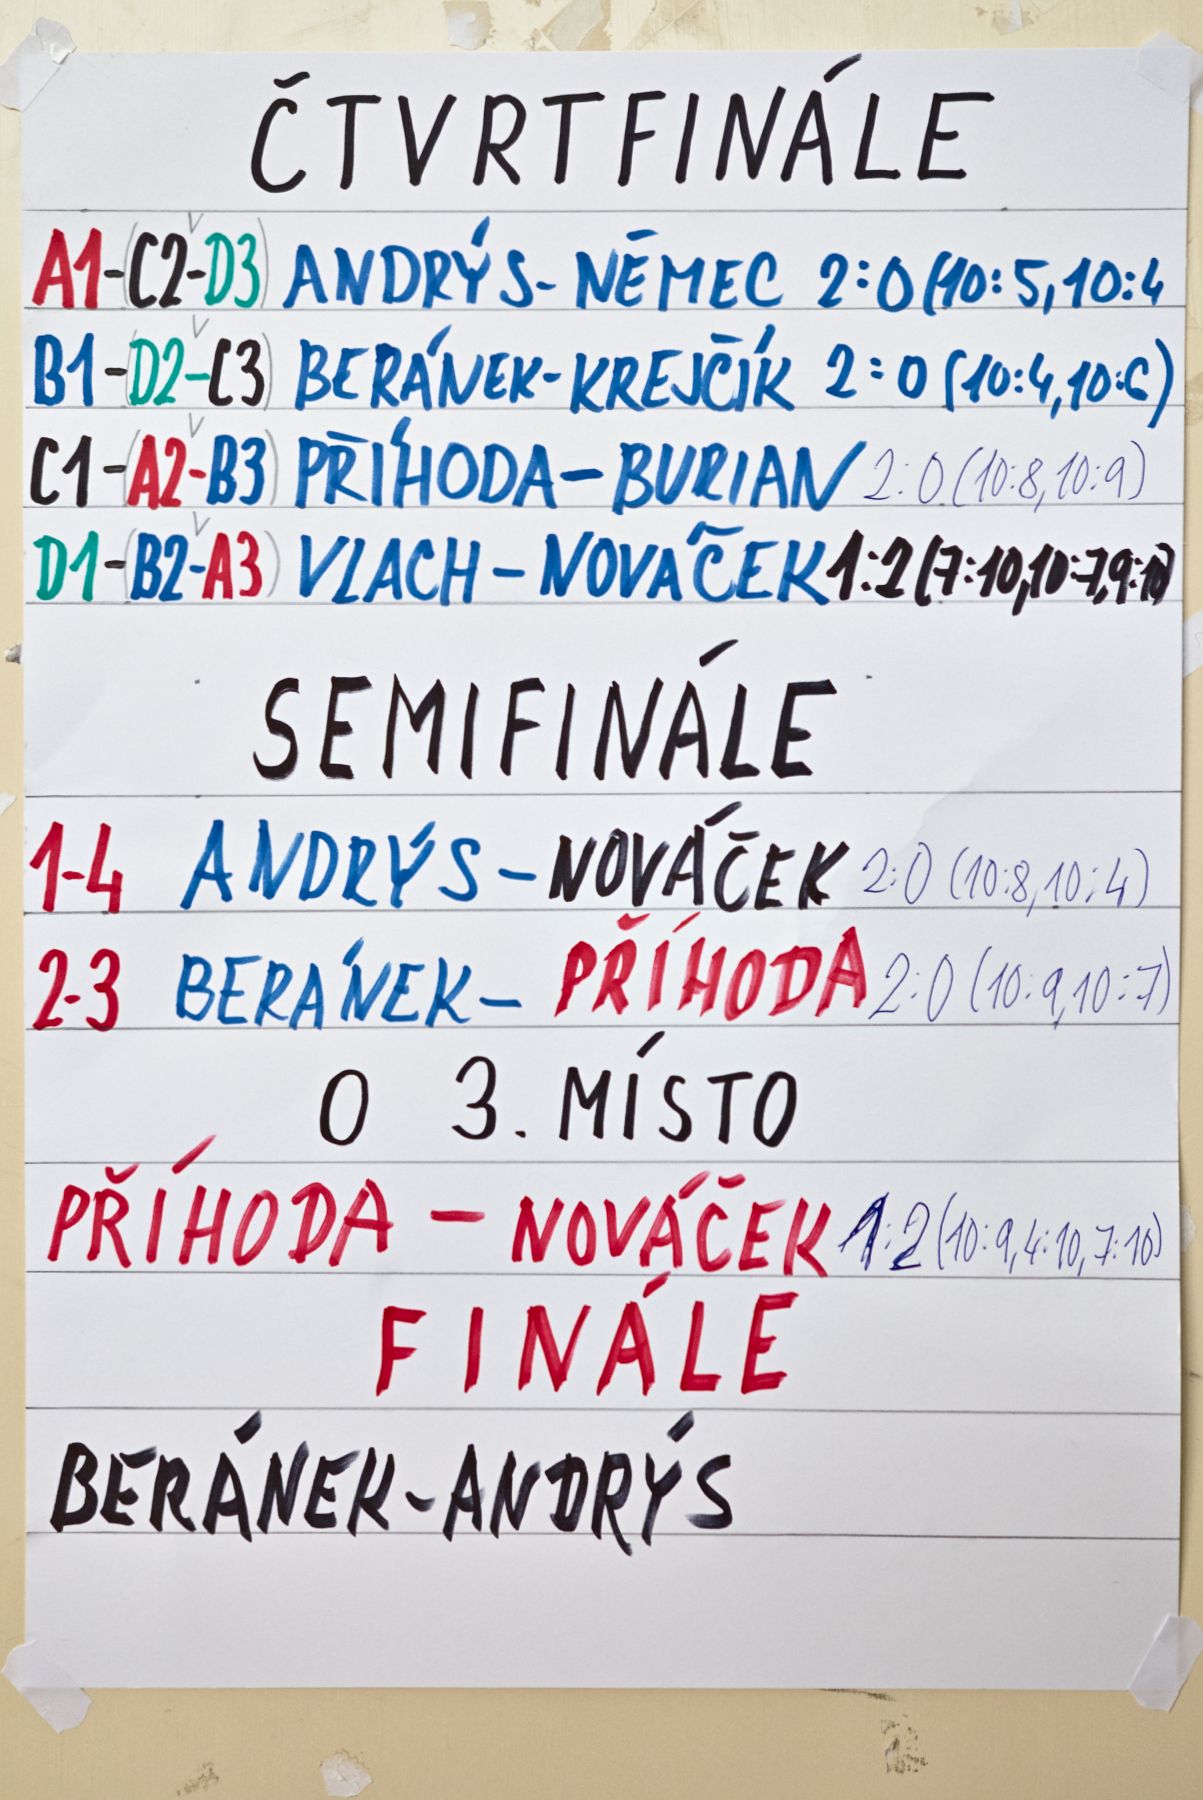 ČTVRTFINÁLE
A1-(C2-D3) ANDRÝS-NĚMEC 2:0(10:5,10:4
B1-(D2-C3) BERÁNEK-KREJČÍK 2:0(10:4,10:6)
C1-(A2-B3) PŘÍHODA-BURIAN 2:0(10:8,10:9)
D1-(B2-A3) VLACH-NOVAČEK 1:2(7:10,10:7,9:10)
SEMIFINÁLE
1-4 ANDRÝS-NOVÁČEK 2:0(10:8,10:4)
2-3 BERÁNEK-PŘÍHODA 2:0(10:9,10:7)
O 3. MÍSTO
PŘÍHODA-NOVÁČEK 1:2(10:9,4:10,7:10)
FINÁLE
BERÁNEK-ANDRÝS